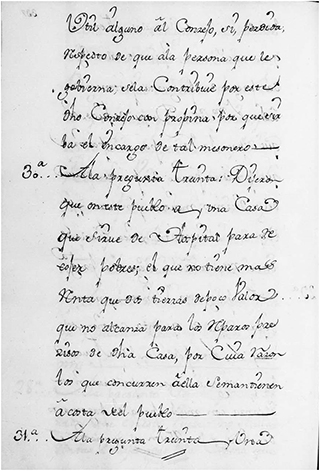 Util alguno al Conzejo, si, perdida,
respecto de que ala persona que le
govierna sela Contribuie por este
dho Conzejo con propina por que sir
ba el encargo de tal mesonero
30.ª Ala pregunta treinta: Dijeron
que en este pueblo a y una Casa
que sirue de Hospital para Re
cojer pobres; el que no tiene mas
Renta que dos tierras de poco Valor
que no alcanza para los Reparos pre
zisos de dha Casa, por Cuia razon
los que concurren a ella Semantienen
a costa del pueblo
31.ª Ala pregunta treinta y una